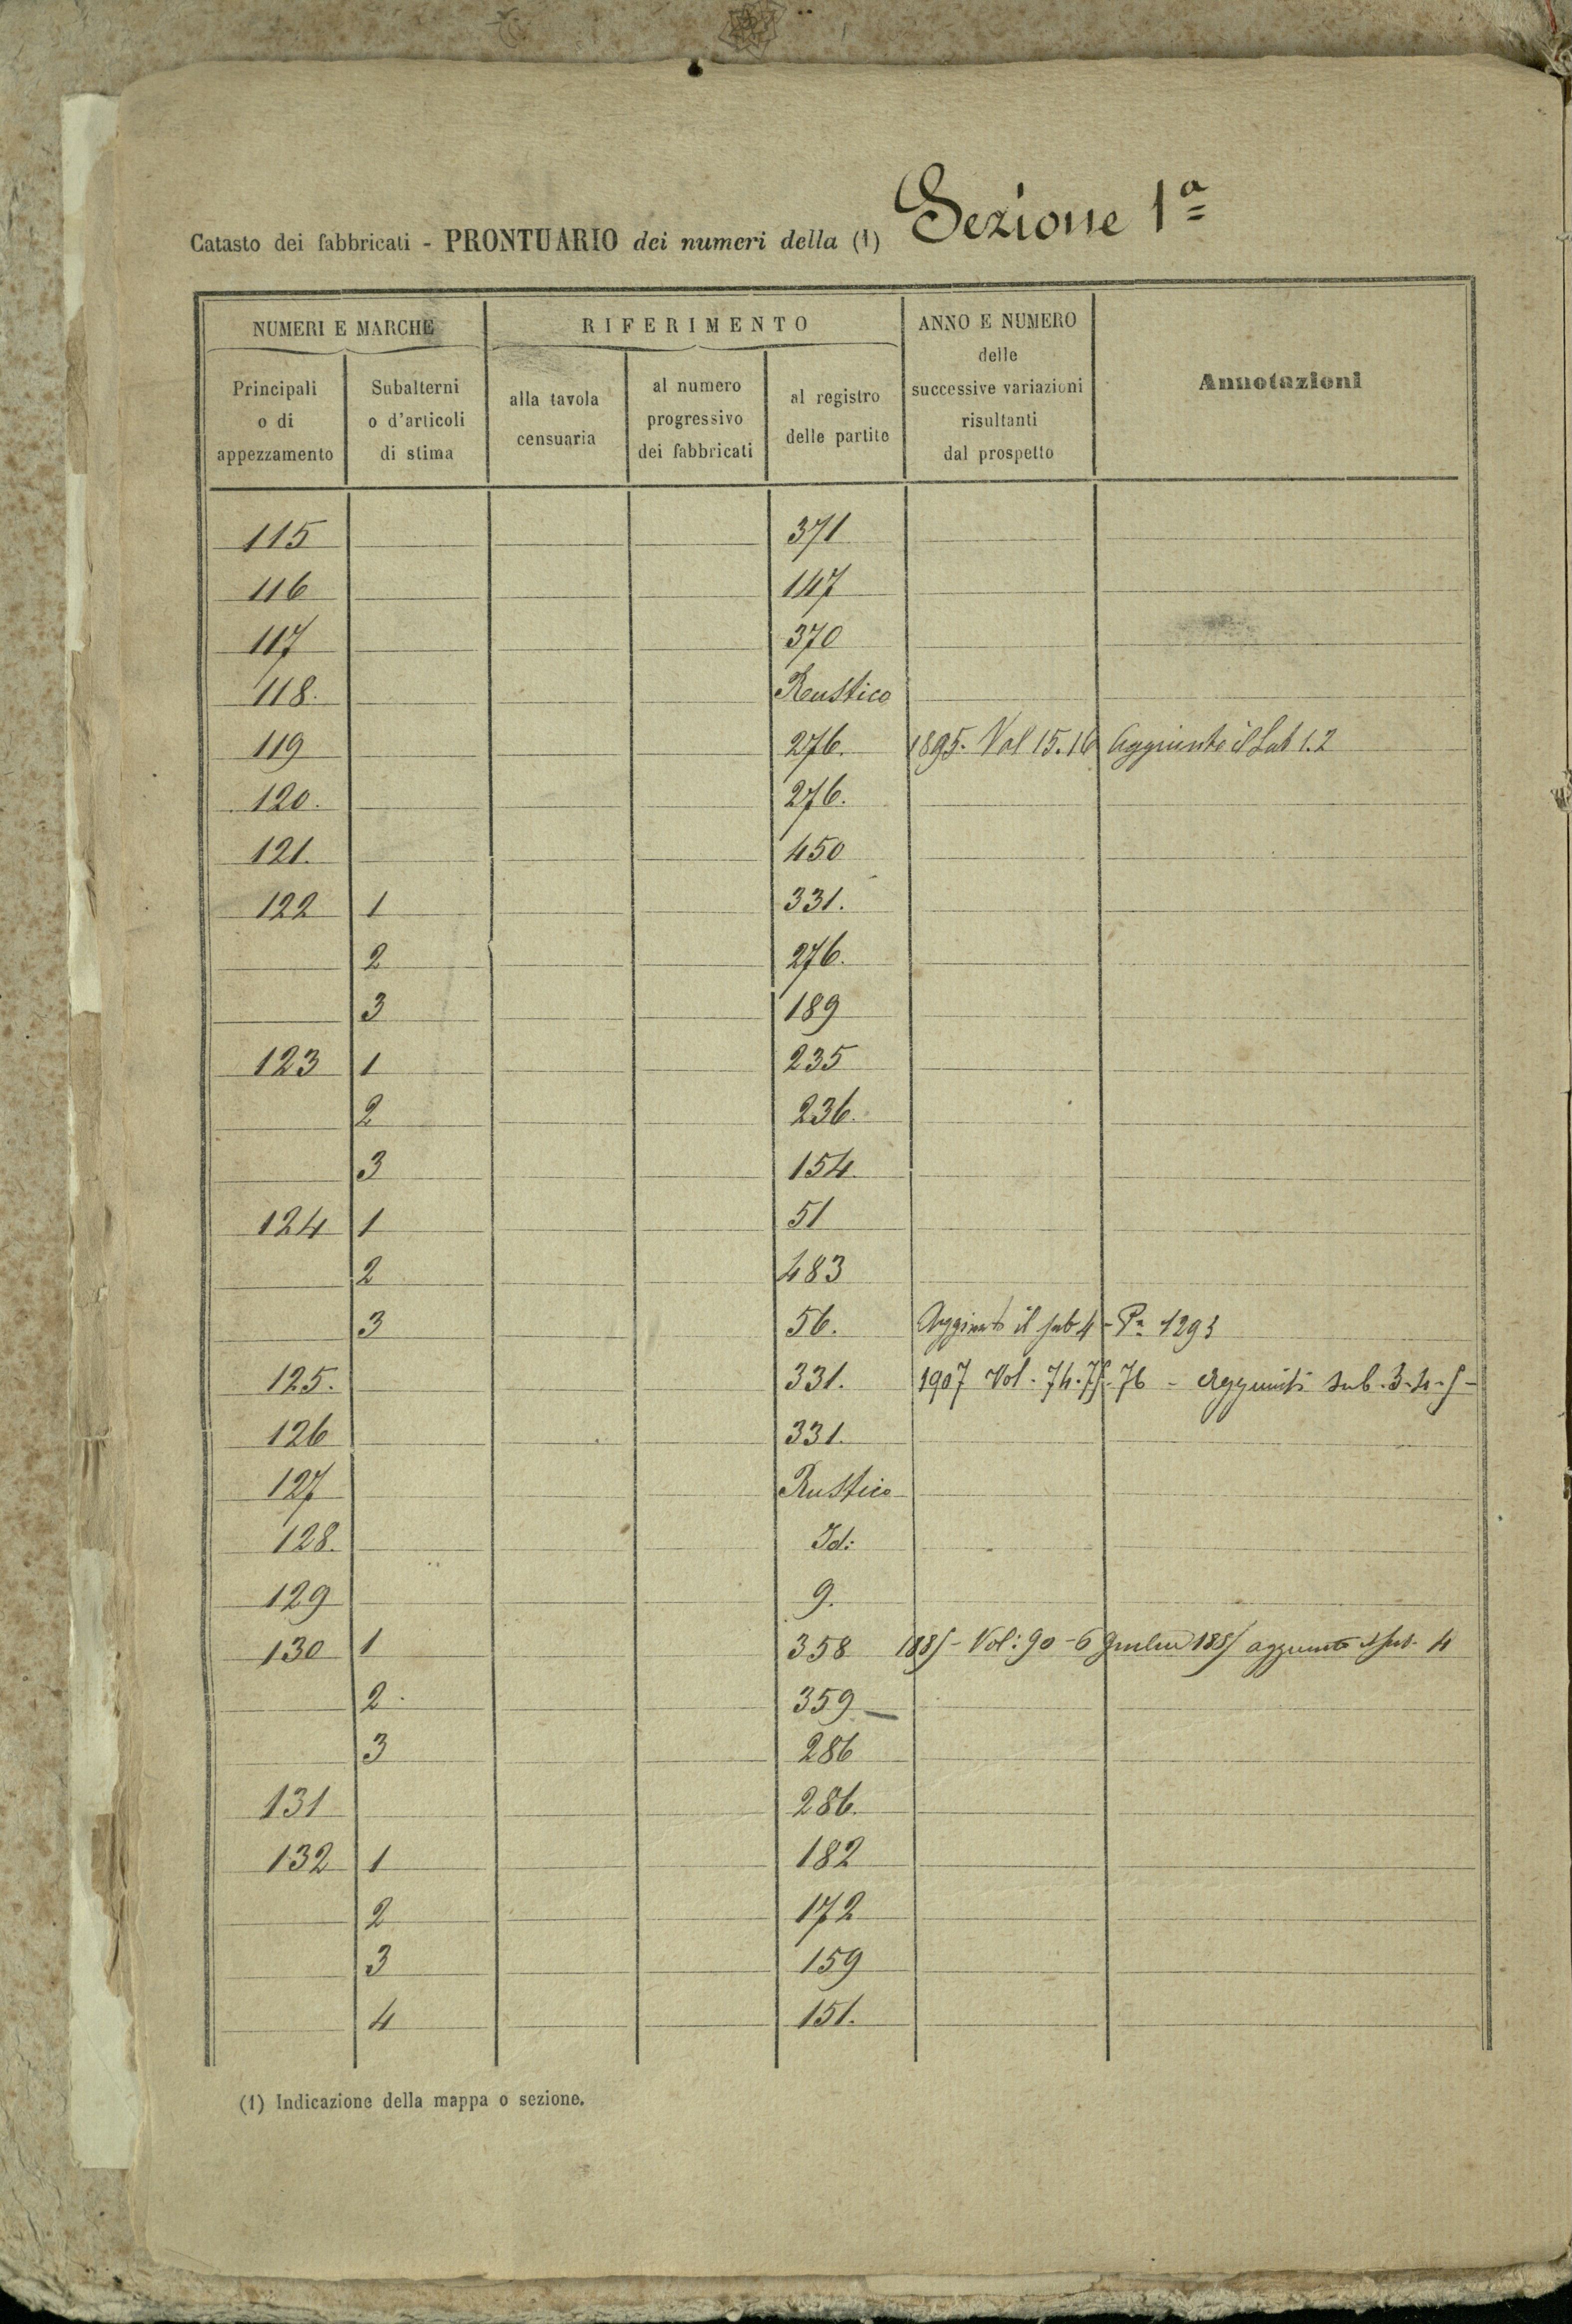 Catasto dei fabbricati - PRONTUARIO dei numeri della (1) Sezione 1ª
NUMERI E MARCHE
RIFERIMENTO
ANNO E NUMERO
delle
successive variazioni
risultanti
dal prospetto
Annotazioni
Principali
o di
appezzamento
Subalterni
o d'articoli
di stima
alla tavola
censuaria
al numero
progressivo
dei fabbricati
al registro
delle partite
115 371
116 147
117 370
118. Rustico
119 276. 1895. Vol 15.16 Aggiunto il Sub 1.2
120. 276.
121. 450
122 1 331.
2 276.
3 189
123 1 235
2 236.
3 154.
124 1 51
2 483
3 56. Aggiunto il sub 4 - Pª 1293
125. 331. 1907 Vol. 74.75.76 - Aggiunti sub. 3-4-5-
126 331.
127 Rustico
128. Id:
129 9.
130 1 358 1885 - Vol: 90 - 6 1885 aggiunto il sub. 4
2 359
3 286
131 286.
132 1 182
2 172
3 159
4 151.
(1) Indicazione della mappa o sezione.